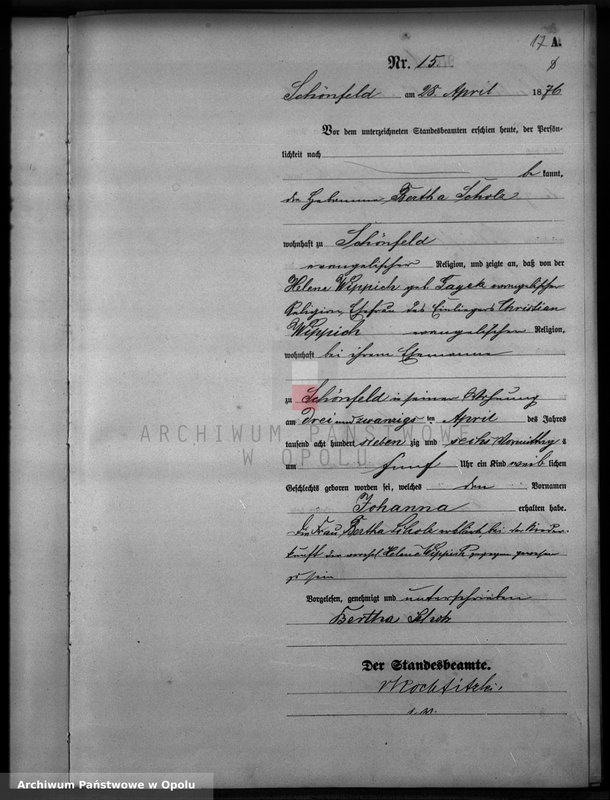 17 A.
8
Nr. 15.
Schönfeld am 28 April 1876
Vor dem unterzeichneten Standesbeamten erschien heute, der Persön-
lichkeit nach
be kannt,
die Hebamme Bertha Scholz
wohnhaft zu Schönfeld
evangelischer Religion, und zeigte an, daß von der
Helene Wippich geb evangelischer
Religion, Ehefrau des Einliegers Christian
Wippich evangelischer Religion,
wohnhaft bei ihrem Ehemanne
zu Schönfeld in seiner Wohnung
am drei und zwanzigs ten April des Jahres
tausend acht hundert sieben zig und sechs Vormittag s
um fünf Uhr ein Kind weib lichen
Geschlechts geboren worden sei, welches den Vornamen
Johanna erhalten habe.
Die Frau Bertha Scholz erklärt, bei der Nieder-
kunft der Helene Wippich zugegen gewesen
zu sein
Vorgelesen, genehmigt und unterschrieben
Bertha Scholz
Der Standesbeamte.
ARCHIWUM PAŃSTWOWE
W OPOLU
Archiwum Państwowe w Opolu